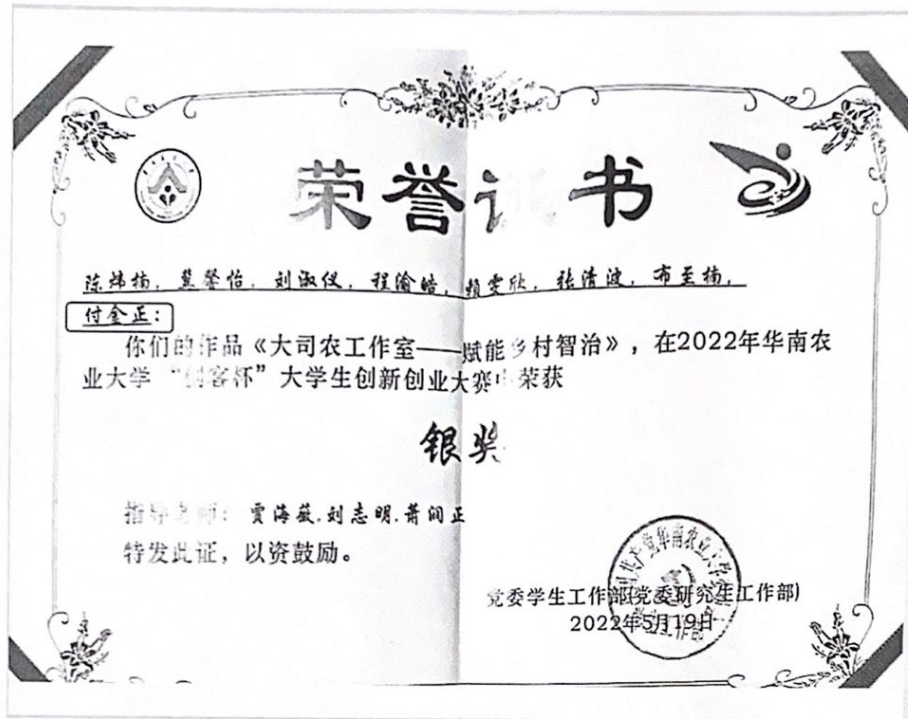 荣誉证书
陈炜楠，蓝馨怡，刘淑仪，程渝皓，赖雯欣，张清波，布至楠，
付金正：
你们的作品《大司农工作室——赋能乡村智治》，在2022年华南农
业大学“创客杯”大学生创新创业大赛中荣获
银奖
指导老师：贾海薇.刘志明.萧润正
特发此证，以资鼓励。
党委学生工作部(党委研究生工作部)
2022年5月19日